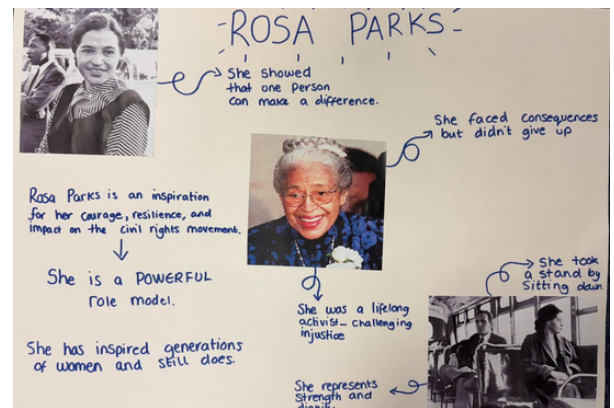 ROSA PARKS
She showed
that one person
can make a difference.
She faced consequences
but didn't give up
Rosa Parks is an inspiration
for her courage, resilience, and
impact on the civil rights movement.
She is a POWERFUL
role model.
She has inspired generations
of women and still does.
She was a lifelong
activist - challenging
injustice
She took
a stand by
sitting down
She represents
strength and
dignity